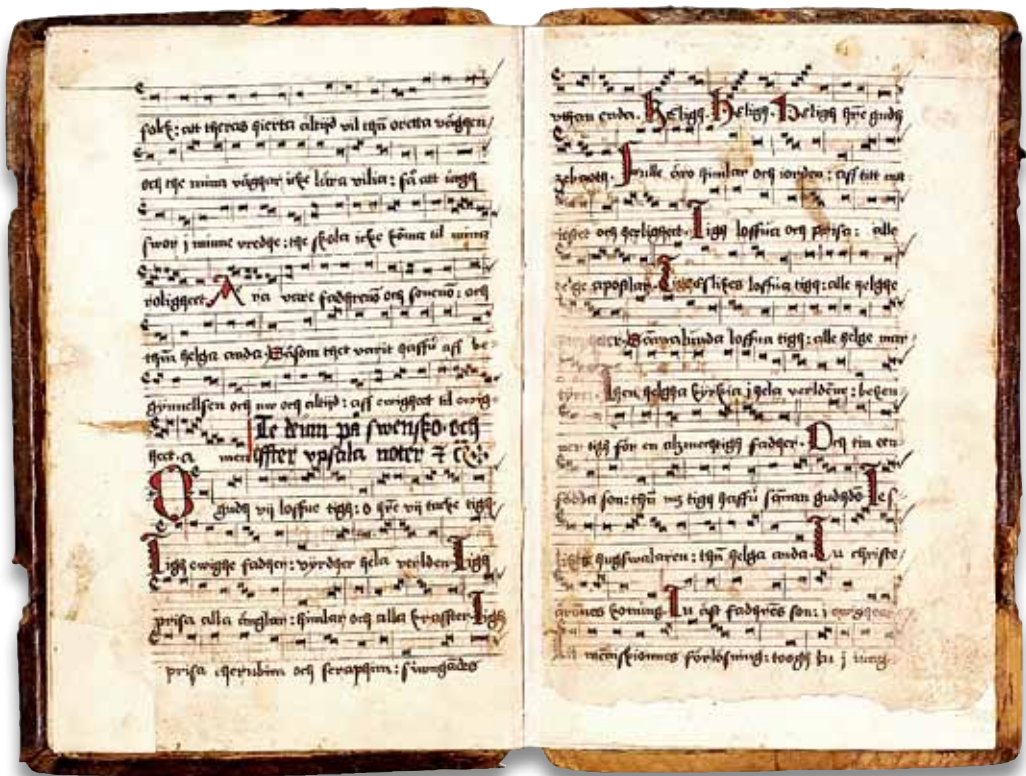 folk: att theras hierta altijd vil than oretta väghen/
och the mina väghar icke lära vilia: så att iagh
swor j minne vredhe: the skola icke köma til mina
roligheet. Ära vare fadhrenō och sonenō: och
thm helga anda. Såsom thet varit haffū aff be-
gynnellsen och nw och altijd: aff ewigheet til ewig-
heet. a men
Te deum på swensko. och
effter vpsala noter
O gudh wij loffue tigh: o hrē wij tacke tigh
Tigh ewighe fadher: vyrdher hela verlden. Tigh
prisa alla änglar: himlar och alla kraffter. Tigh
prisa cherubim och seraphim: siwngādes
vthan enda. Heligh. Heligh. Heligh hrē gudh
zebaoth. Fulle äro himlar och iorden: aff titt ma-
iestet och herligheet. Tigh loffua och prisa: alle
helge apostlar. Tigeslikes loffua tigh: alle helghe
Sāmalunda loffua tigh: alle helge mar
Then helgha kyrkia j hela verldēne: beken
ner tigh för en alzmechtigh fadher. Och tin een
födda son: thn mz tigh haffū säman gudhdō. Tes
likes hugswalaren: thn helga anda. Tu christe/
ärones konung. Tu äst fadhres son: i ewigheet
menniskiones förlösning: toogh tu j iung